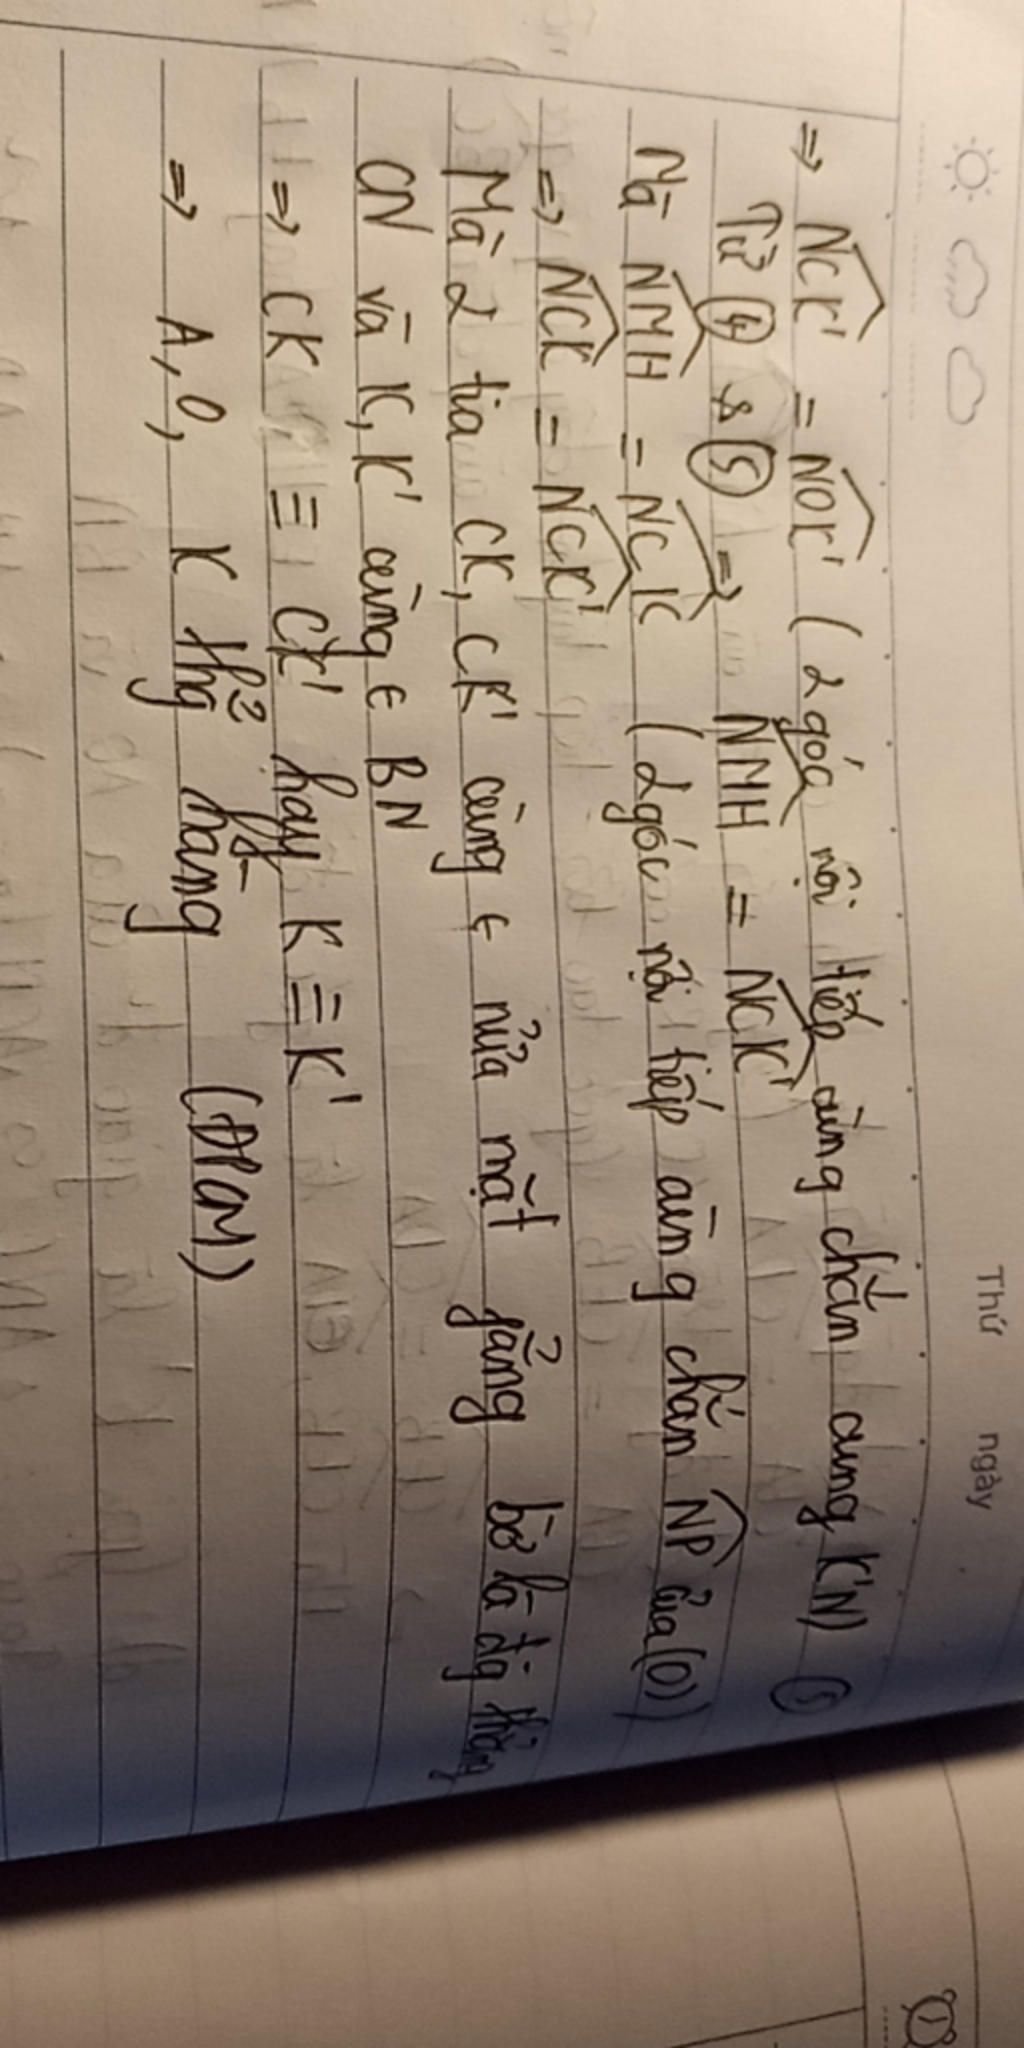 Thứ ngày
⇒ \widehat{NCK'} = \widehat{NOK'} ( 2 góc nội tiếp cùng chắn cung K'N) ⑤
Từ ④ & ⑤ ⇒ \widehat{NMH} = \widehat{NCK'}
Mà \widehat{NMH} = \widehat{NCK} ( 2 góc nội tiếp cùng chắn \widehat{NP} của (O))
⇒ \widehat{NCK} = \widehat{NCK'}
Mà 2 tia CK, CK' cùng ∈ nửa mặt fẳng bờ là đg thẳng
CN và K, K' cùng ∈ BN
⇒ CK ≡ CK' hay K ≡ K'
⇒ A, O, K thẳg hàng (ĐPCM)